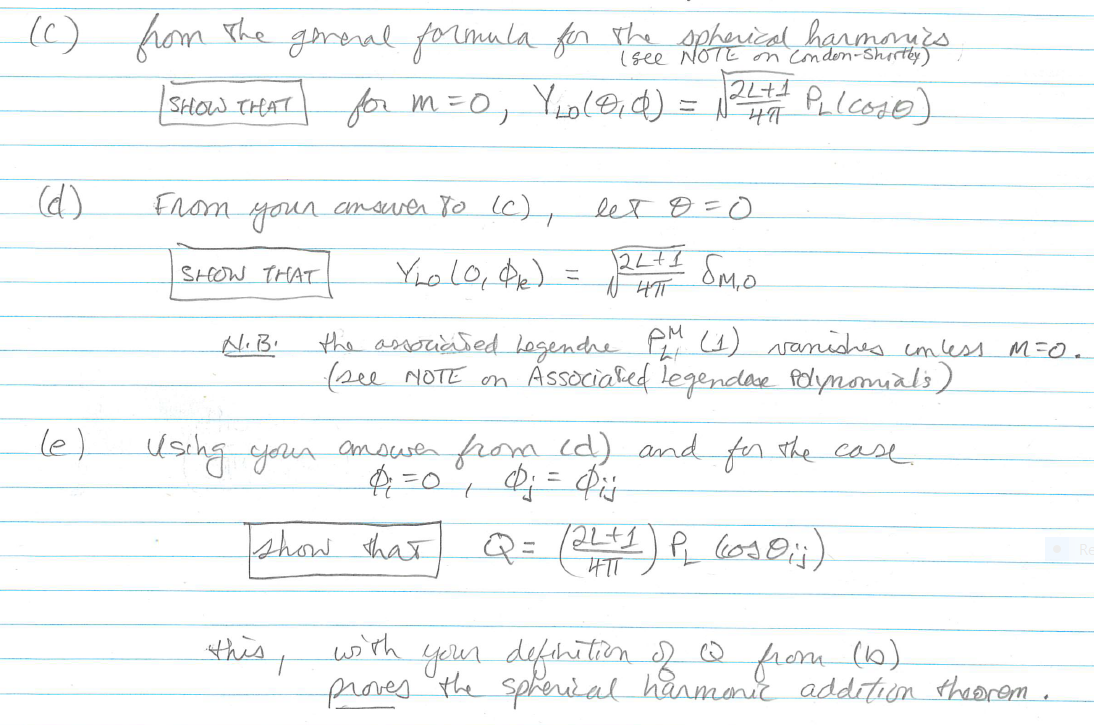 (c) from the general formula for the spherical harmonics
(see NOTE on Condon-Shortley)
SHOW THAT for m=0, Y_L0(θ,ϕ) = √(2L+1/4π) P_L(cosθ)
(d) From your answer to (c), let θ=0
SHOW THAT Y_L0(0, ϕ_k) = √(2L+1/4π) δ_M,0
N.B. the associated Legendre P_L^M (1) vanishes unless M=0.
(see NOTE on Associated Legendre Polynomials)
(e) Using your answer from (d) and for the case
ϕ_i=0, ϕ_j = ϕ_ij
show that Q = (2L+1/4π) P_L (cosθ_ij)
this, with your definition of Q from (b)
proves the spherical harmonic addition theorem.